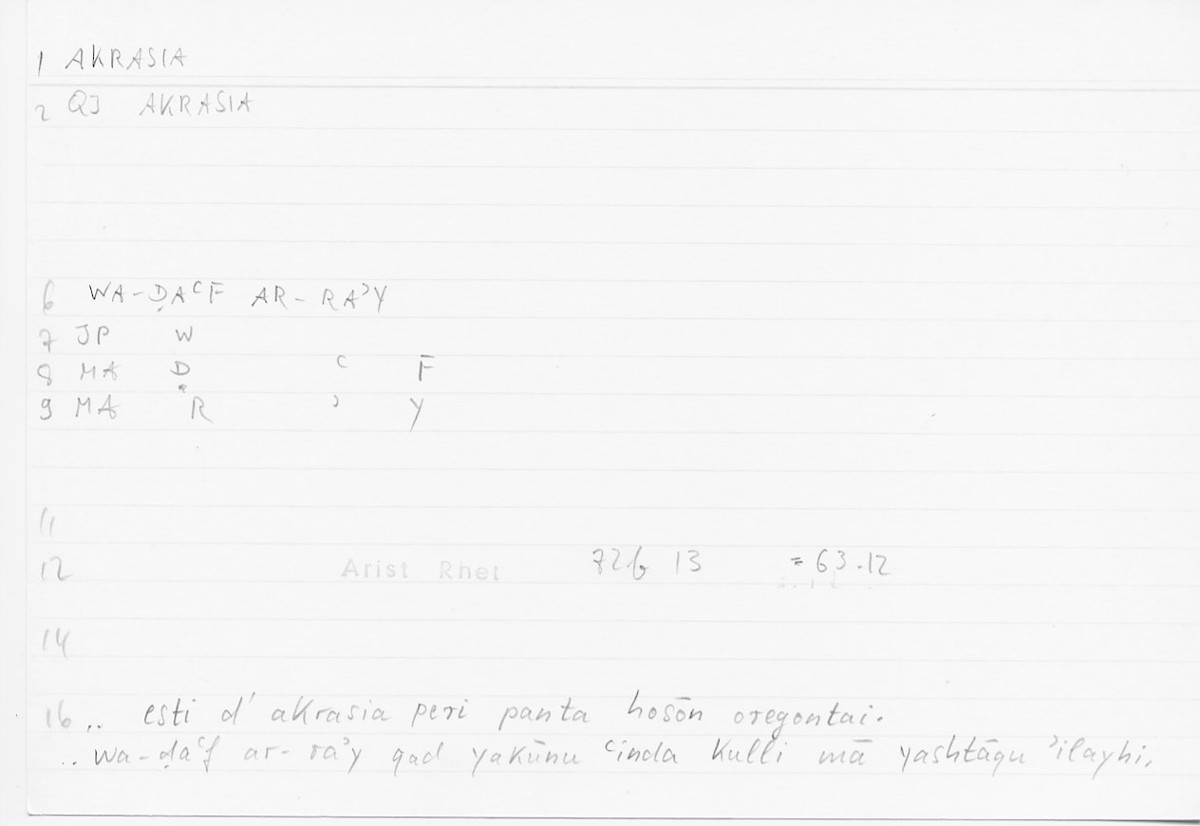 1 AKRASIA
2 QJ AKRASIA
6 WA-ḌAʿF AR-RAʾY
7 JP W
8 MA Ḍ ʿ F
9 MA R ʾ Y
11
12 Arist Rhet 72b 13 = 63.12
14
16 .. esti d' akrasia peri panta hosōn oregontai.
.. wa-ḍaʿf ar-raʾy qad yakūnu ʿinda kulli mā yashtāqu ʾilayhi,